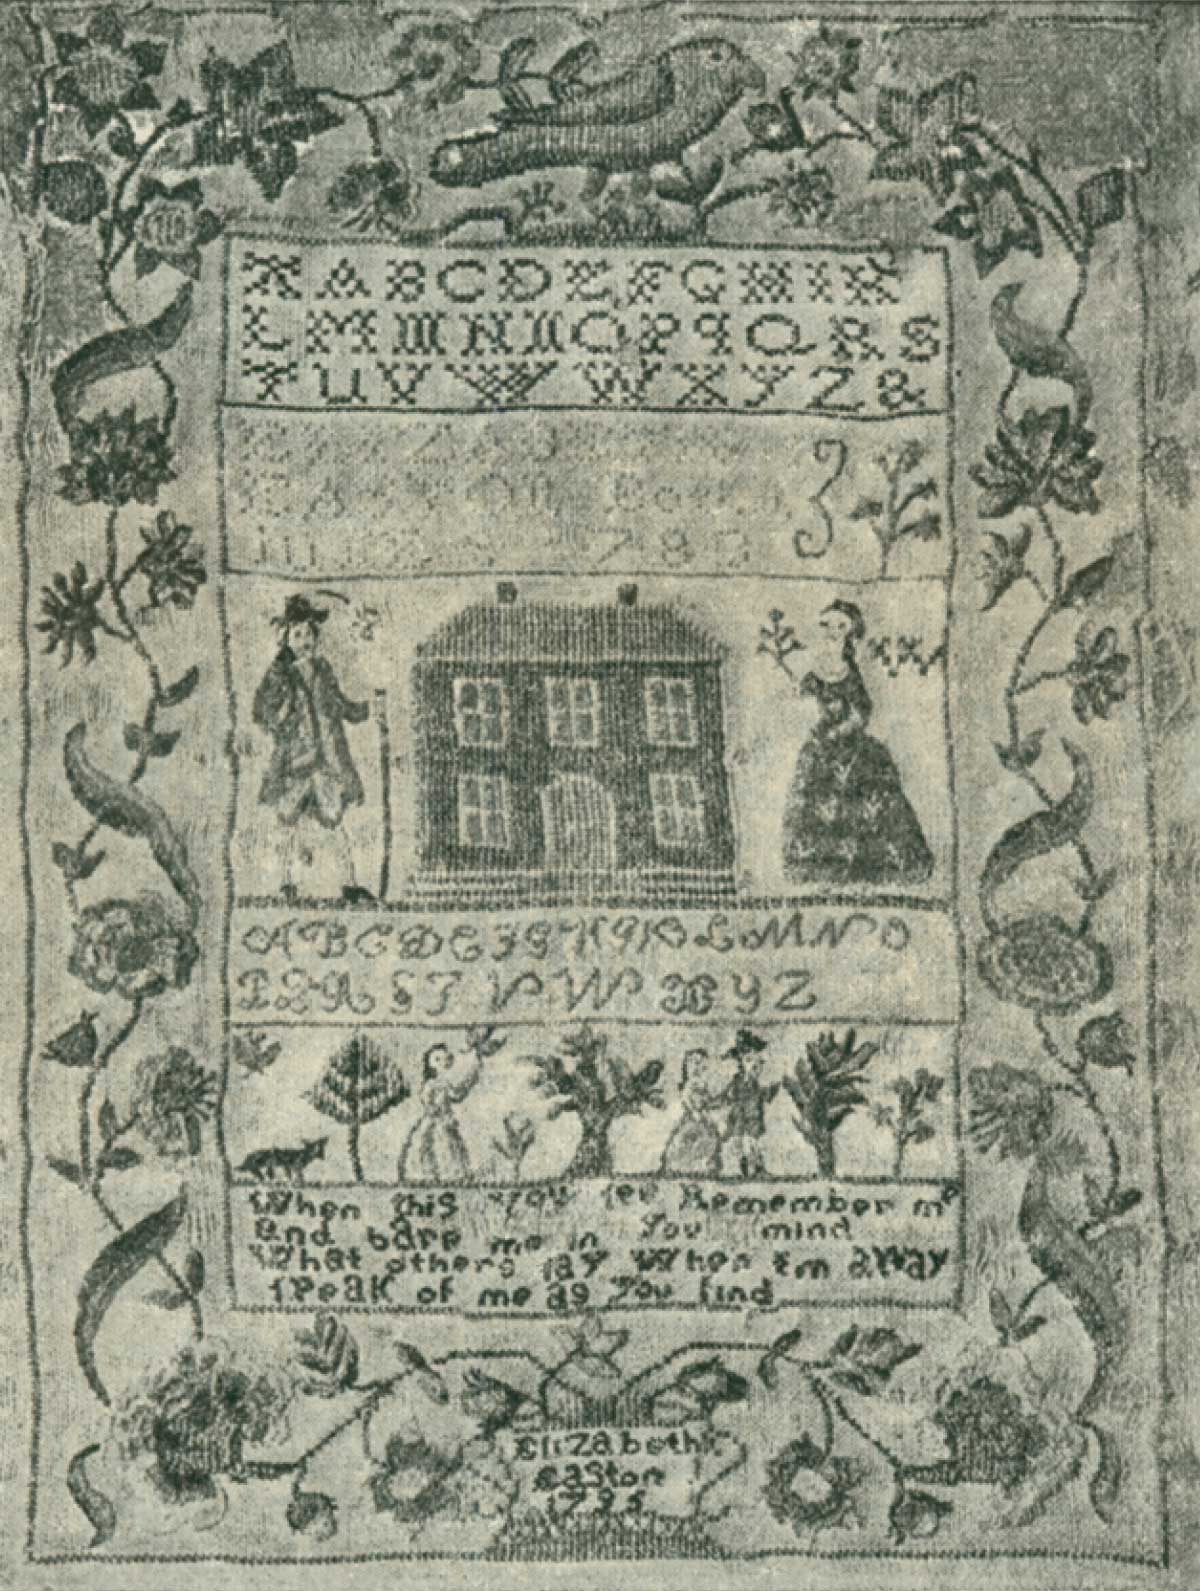 A A B C D E F G H I K
L M M N N O P q Q R S
T U V W W X Y Z &
A B C D E F G H I K L M N O
P Q R S T V W X Y Z
When this you see Remember me
and bare me in You mind
What others say When Em away
speak of me as You find
Elizabeth
Easton
1795